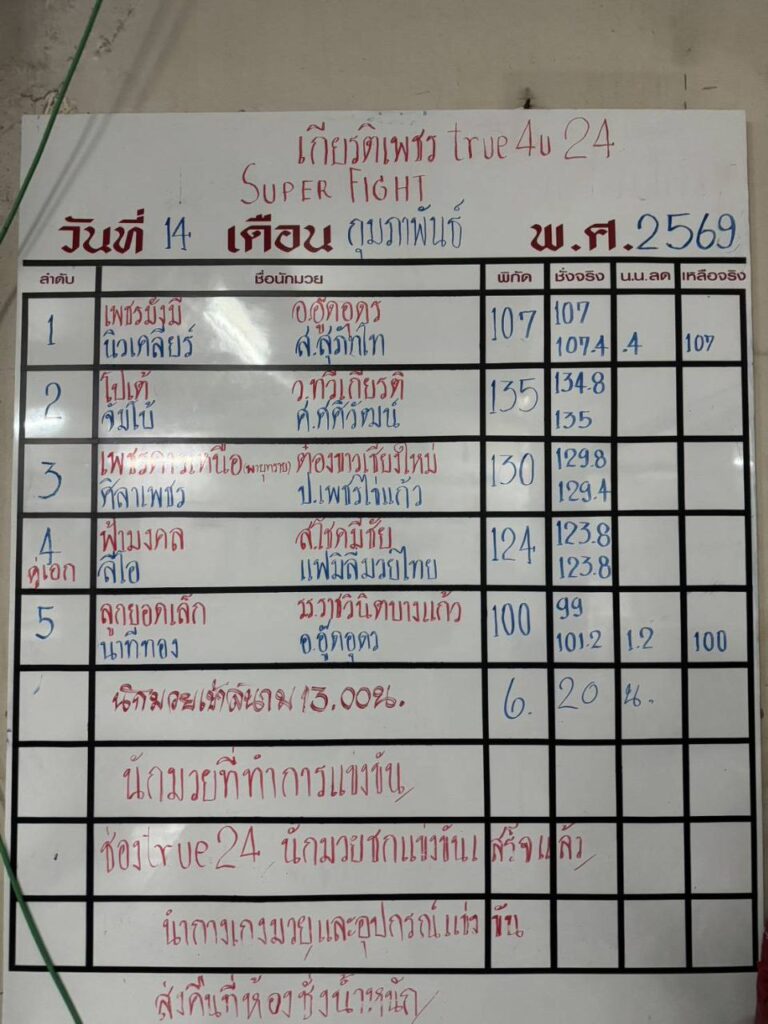 เกียรติเพชร true4u 24
SUPER FIGHT
วันที่ 14 เดือน กุมภาพันธ์ พ.ศ. 2569
ลำดับ ชื่อนักมวย พิกัด ชั่งจริง น.น.ลด เหลือจริง
1 เพชรมั่งมี อ.อู๊ดอุดร 107 107
นิวเคลียร์ 107.4 .4 107
2 โปเต้ ว.ทวีเกียรติ 135 134.8
จัมโบ้ ศ.ศศิวัฒน์ 135
3 เพชรดาวเหนือ (พายุทราย) ต๋องขาวเชียงใหม่ 130 129.8
ศิลาเพชร ป.เพชรไข่แก้ว 129.4
4 ฟ้ามงคล ส.โชคมีชัย 124 123.8
คู่เอก ลีโอ แฟมิลี่มวยไทย 123.8
5 ลูกยอดเล็ก รร.ราชวินิตบางแก้ว 100 99
นาทีทอง อ.อู๊ดอุดร 101.2 1.2 100
นักมวยเข้าสนาม 13.00น. 6. 20 น.
นักมวยที่ทำการแข่งขัน
ช่องtrue24 นักมวยชกแข่งขันเสร็จแล้ว
นำกางเกงมวยและอุปกรณ์แข่งขัน
ส่งคืนที่ห้องชั่งน้ำหนัก